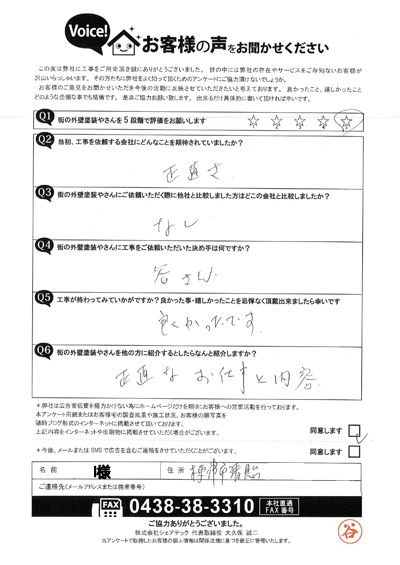 Voice! お客様の声をお聞かせください
この度は弊社に工事をご用命頂き誠にありがとうございました。世の中には弊社の存在やサービスをご存知ないお客様が
沢山いらっしゃいます。その方たちに弊社をよく知って頂くためのアンケートにご協力頂けないでしょうか。
お客様のご意見をお聞かせいただき今後の活動に反映させていただきたいと考えております。良かったこと、嬉しかったこと
どのような些細な事でも結構です。是非ご協力お願い致します。出来るだけ具体的に書いて頂ければ幸いです。
Q1 街の外壁塗装やさんを5段階で評価をお願いします ☆ ☆ ☆ ☆ ☆
Q2 当初、工事を依頼する会社にどんなことを期待されていましたか?
正直さ
Q3 街の外壁塗装やさんにご依頼いただく際に他社と比較しました方はどこの会社と比較しましたか?
なし
Q4 街の外壁塗装やさんに工事をご依頼いただいた決め手は何ですか?
谷さん
Q5 工事が終わってみていかがですか?良かった事・嬉しかったことを忌憚なく頂戴出来ましたら幸いです
良くかったです
Q6 街の外壁塗装やさんを他の方に紹介するとしたらなんと紹介しますか?
正直なお仕事と内容
*弊社は広告宣伝費を極力かけない為にホームページだけを頼りにお客様への営業活動を行っております。
本アンケート用紙またはお客様宅の調査風景や施工状況、お客様の顔写真を
随時ブログ形式のインターネットに掲載させて頂いております。
上記内容をインターネットや印刷物に掲載させていただく場合がございます。 同意します
*今後、メールまたはSMSで広告を含むご連絡をさせていただくことがございます。 同意します
名前 様 住所
ご連絡先(メールアドレスまたは携帯番号)
FAX 0438-38-3310 本社直通 FAX番号
ご協力ありがとうございました。
株式会社シェアテック 代表取締役 大久保 誠二
当アンケートで取得したお客様の個人情報は関係法規に基づき厳正に管理いたします。
谷